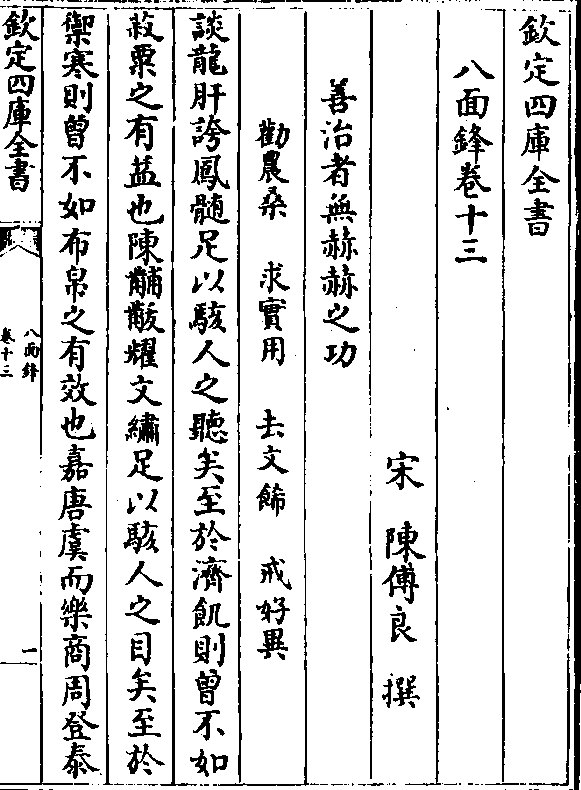 欽定四庫全書
八面鋒卷十三
宋 陳傅良 撰
善治者無赫赫之功
勸農桑 求實用 去文飾 戒好異
談龍肝誇鳳髓足以駭人之聽矣至於濟飢則曾不如
菽粟之有益也陳黼黻耀文繡足以駭人之目矣至於
禦寒則曾不如布帛之有效也嘉唐虞而樂商周登泰
欽定四庫全書
八面鋒
卷十三
一